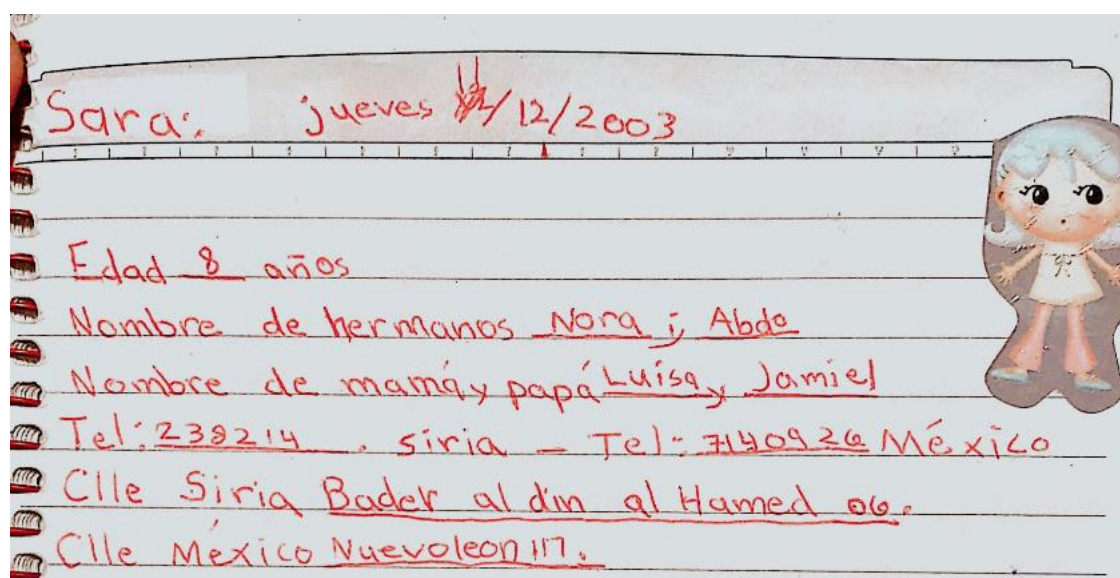 Sara: jueves /12/2003
Edad 8 años
Nombre de hermanos Nora i Abdo
Nombre de mamá y papá Luísa y Jamiel
Tel: 238214 . siria - Tel: 7140926 México
Clle Siria Bader al din al Hamed 06.
Clle México Nuevoleon 117.